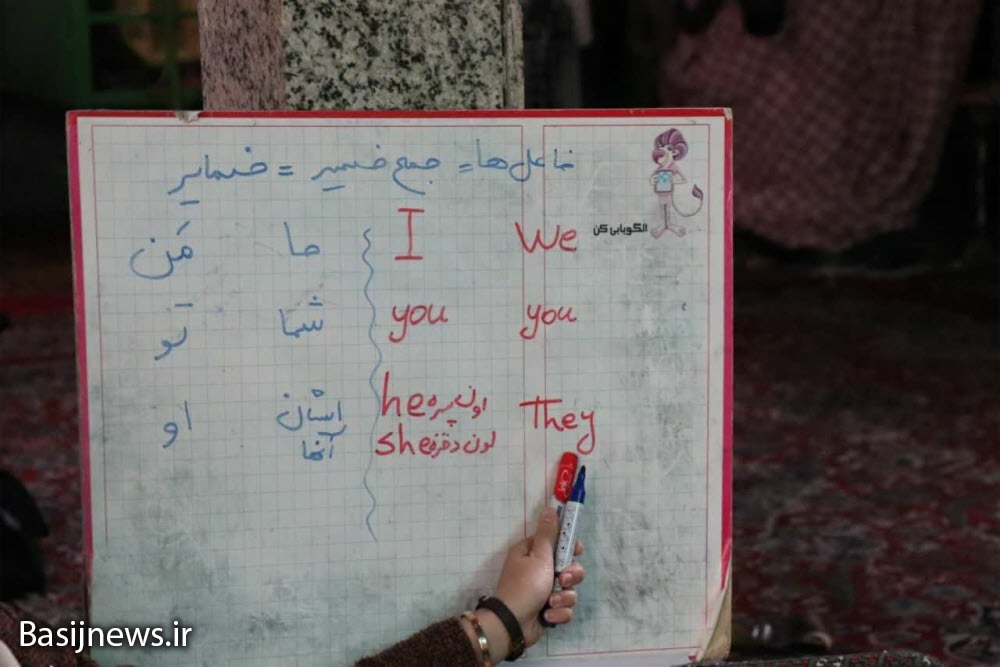 فاعل‌ها = جمع ضمیر = ضمایر
الگویابی کن
مَن ما I We
تو شما you you
او ایشان he اون پسره They
آنها she اون دختره
Basijnews.ir